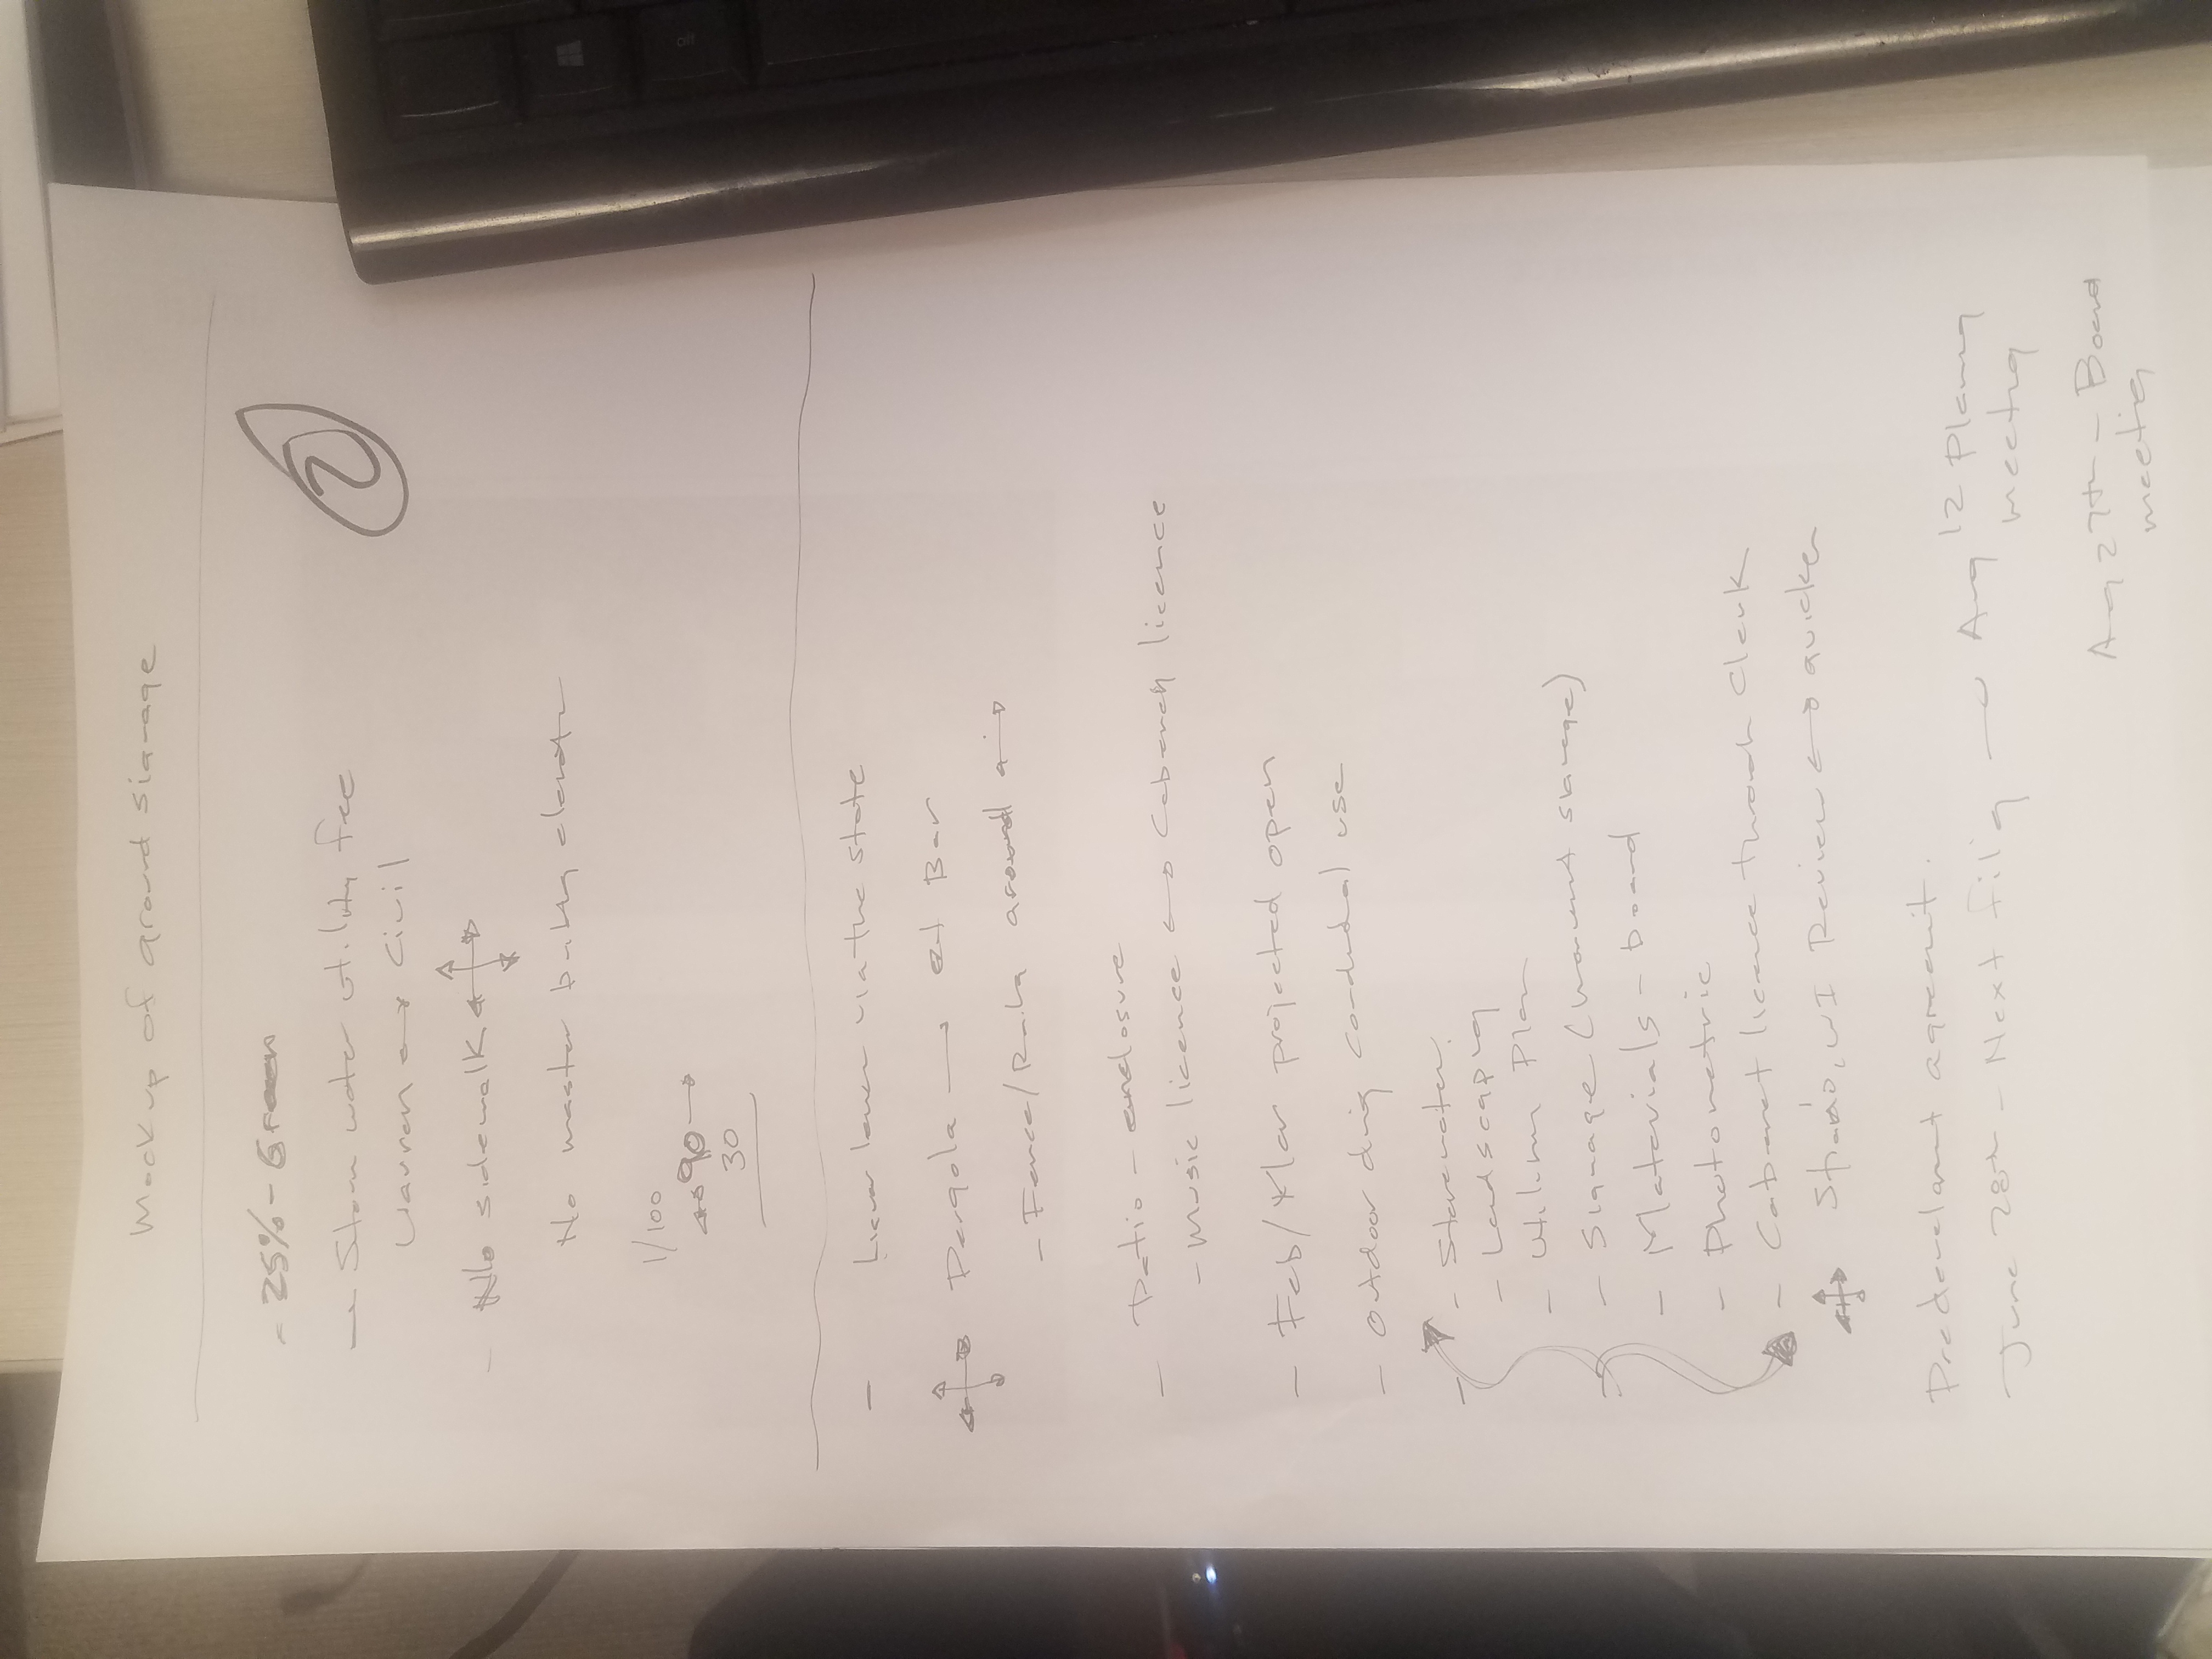 Mockup of ground signage
- 25% - Green
- Storm water utility free
Lauren → Civil
- No sidewalk
No master building
1/100
90 →
30
②
- Liquor via the state
Pergola → at Bar
- Fence / around
- Patio - enclosure
- Music licence ↔ Cabaret licence
- Feb/Mar projected open
- outdoor dinig condual use
- Stormwater
- Landscapng
- Utilitn Plan
- Signage ( )
- Materials - board
- Photometric
- Cabaret licence through Clerk
WI Review ↔ quicker
Predevelopment agreement.
- June 28th - Next filig → Aug 12 planng meetng
Aug 27th - Board meetig